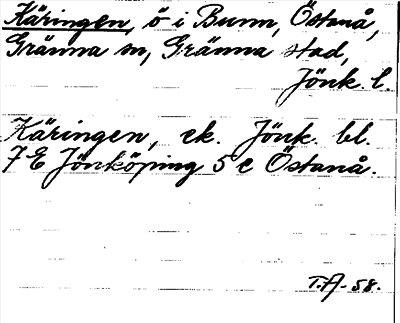 Käringen, ö i Bunn, Östanå,
Gränna sn, Gränna stad,
Jönk. l.
Käringen, ek. Jönk. bl.
7 E Jönköping 5 c Östanå.
T.A-58.